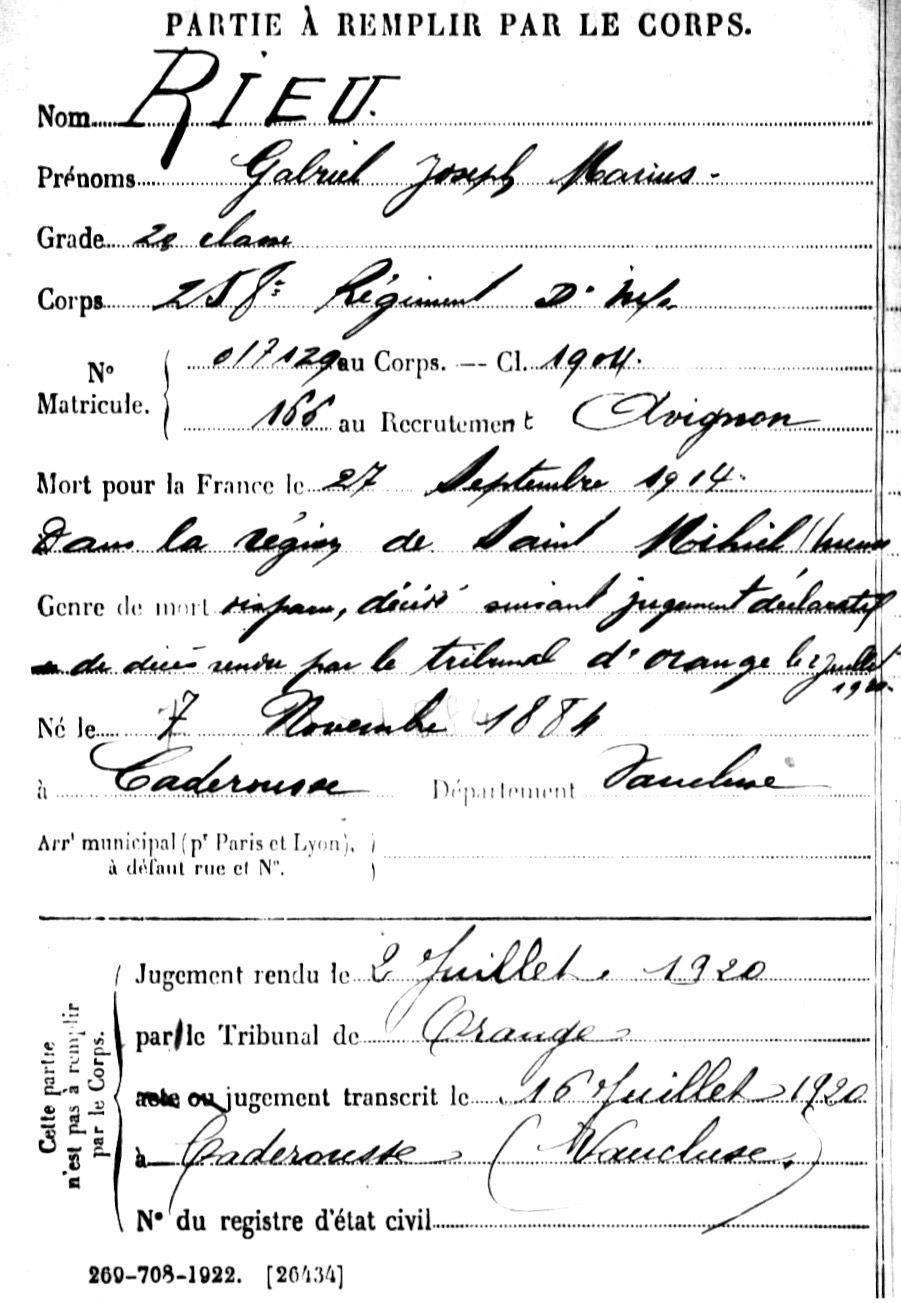 PARTIE À REMPLIR PAR LE CORPS.
Nom RIEU.
Prénoms Gabriel Joseph Marius -
Grade 2e classe
Corps 258e Régiment D'Inf.
No Matricule. 017129 au Corps. — Cl. 1904.
166 au Recrutement Avignon
Mort pour la France le 27 Septembre 1914.
Dans la région de Saint Mihiel (Meuse
Genre de mort disparu, décidé suivant jugement déclaratif
de décès rendu par le tribunal d'Orange le 2 Juillet
1920.
Né le 7 Novembre 1884
à Caderousse Département Vaucluse
Arrt municipal (pr Paris et Lyon),
à défaut rue et No.
Cette partie n'est pas à remplir par le Corps.
Jugement rendu le 2 Juillet. 1920
par le Tribunal de Orange
acte ou jugement transcrit le 16 Juillet 1920
à Caderousse (Vaucluse.)
No du registre d'état civil
269-708-1922. [26434]